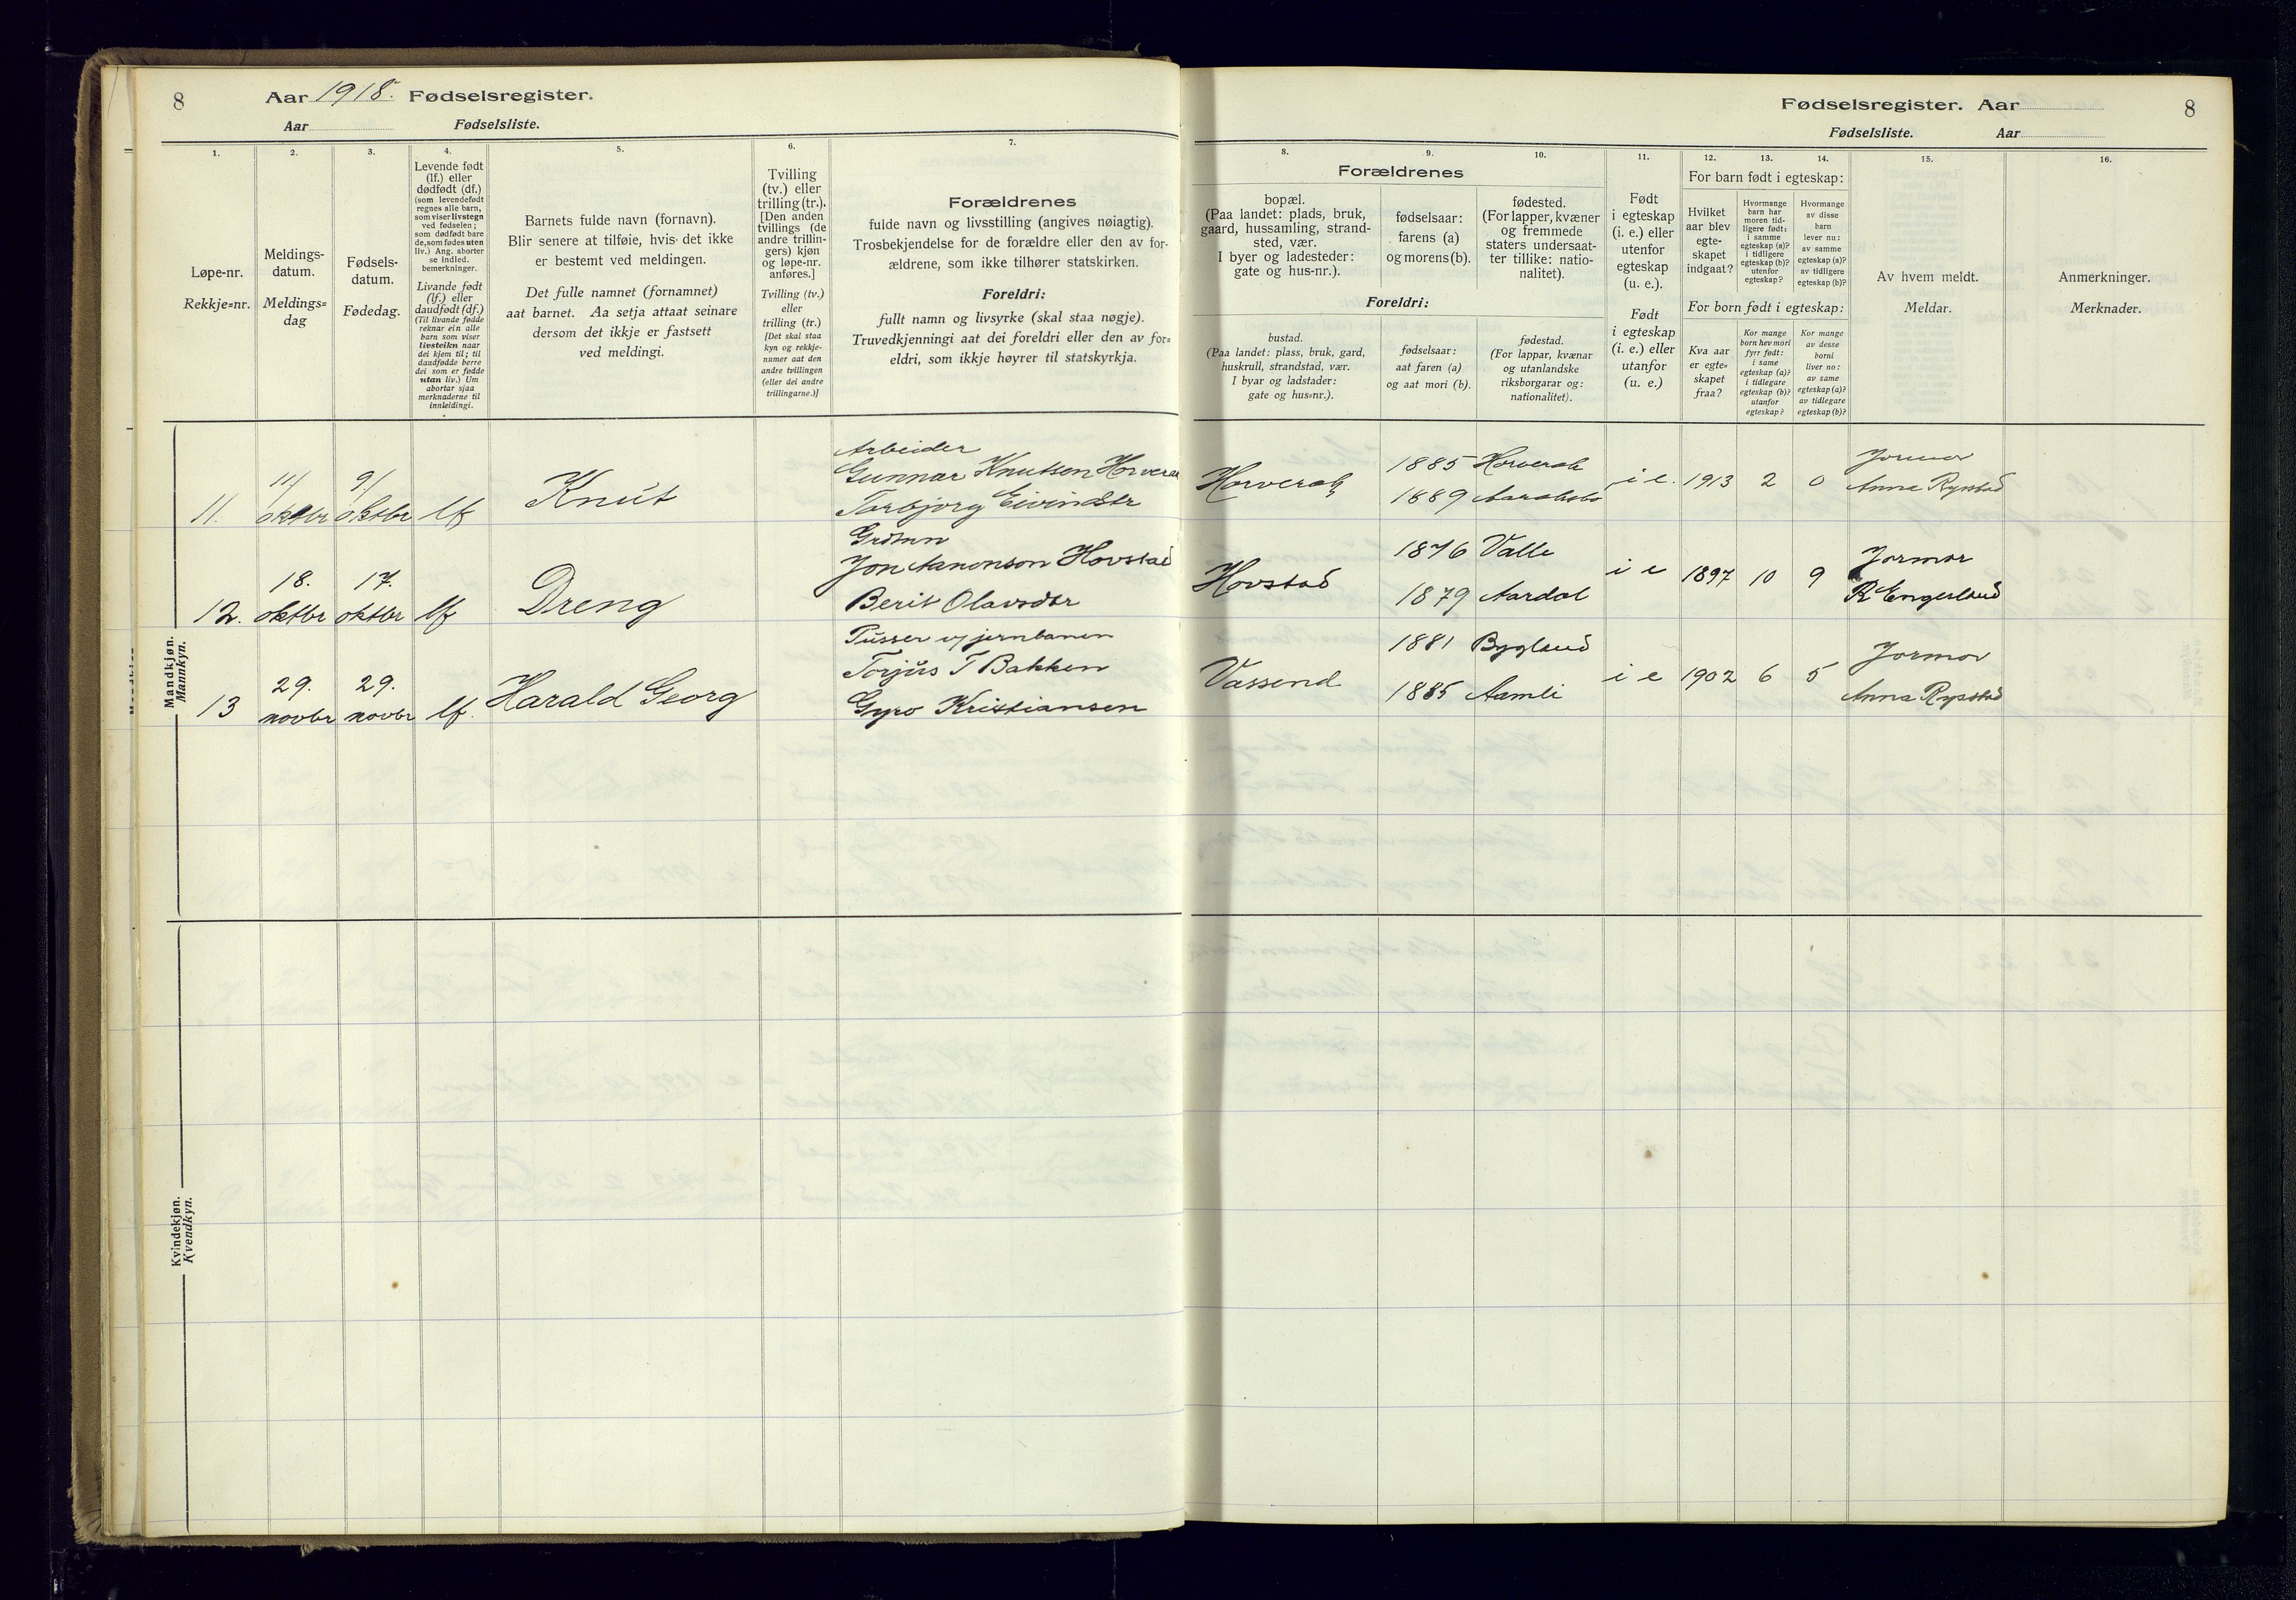 8
Aar 1918. Fødselsregister.
Aar Fødselsliste.
1.
Løpe-nr.
Rekkje=nr.
2.
Meldings-
datum.
Meldings=
dag
3.
Fødsels-
datum.
Fødedag.
4.
Levende født
(lf.) eller
dødfødt (df.)
(som levendefødt
regnes alle barn,
som viser livstegn
ved fødselen;
som dødfødt bare
de, som fødes uten
liv.) Ang. aborter
se indled.
bemerkninger.
Livande født
(lf.) eller
daudfødt (df.)
(Til livande fødde
reknar ein alle
barn som viser
livsteikn naar
dei kjem til; til
daudfødde berre
dei som er fødde
utan liv.) Um
abortar sjaa
merknaderne til
innleidingi.
5.
Barnets fulde navn (fornavn).
Blir senere at tilføie, hvis det ikke
er bestemt ved meldingen.
Det fulle namnet (fornamnet)
aat barnet. Aa setja attaat seinare
dersom det ikkje er fastsett
ved meldingi.
6.
Tvilling
(tv.) eller
trilling (tr.).
[Den anden
tvillings (de
andre trillin-
gers) kjøn
og løpe-nr.
anføres.]
Tvilling (tv.)
eller
trilling (tr.)
[Det skal staa
kyn og rekkje-
numer aat den
andre tvillingen
(eller dei andre
trillingarne.)]
7.
Forældrenes
fulde navn og livsstilling (angives nøiagtig).
Trosbekjendelse for de forældre eller den av for-
ældrene, som ikke tilhører statskirken.
Foreldri:
fullt namn og livsyrke (skal staa nøgje).
Truvedkjenningi aat dei foreldri eller den av for=
eldri, som ikkje høyrer til statskyrkja.
Mandkjøn.
Mannkyn.
Arbeider
11. 11/ oktbr 9/ oktbr lf Knut Gunnar Knutsen Horverak
Torbjørg Eivindsdtr
Grdmn
12. 18. oktbr 17. oktbr lf Dreng Jon Aanonson Hovstad
Berit Olavsdtr
Pusser v/ jernbanen
13 29. novbr 29. novbr lf. Harald Georg Torjus T Bakken
Gyro Kristiansen
Kvindekjøn.
Kvendkyn.
Fødselsregister. Aar 8
Fødselsliste. Aar
8.
Forældrenes
bopæl.
(Paa landet: plads, bruk,
gaard, hussamling, strand-
sted, vær.
I byer og ladesteder:
gate og hus-nr.).
Foreldri:
bustad.
(Paa landet: plass, bruk, gard,
huskrull, strandstad, vær.
I byar og ladstader:
gate og hus=nr.).
9.
fødselsaar:
farens (a)
og morens (b).
fødselsaar:
aat faren (a)
og aat mori (b).
10.
fødested.
(For lapper, kvæner
og fremmede
staters undersaat-
ter tillike: natio-
nalitet).
fødestad.
(For lappar, kvænar
og utanlandske
riksborgarar og:
nationalitet).
11.
Født
i egteskap
(i. e.) eller
utenfor
egteskap
(u. e.).
Født
i egteskap
(i. e.) eller
utanfor
(u. e.)
For barn født i egteskap:
12.
Hvilket
aar blev
egte-
skapet
indgaat?
13.
Hvormange
barn har
moren tid-
ligere født:
i samme
egteskap (a)?
i tidligere
egteskap (b)?
utenfor
egteskap?
14.
Hvormange
av disse
barn
lever nu:
av samme
egteskap (a)?
av tidligere
egteskap (b)?
For born født i egteskap:
Kva aar
er egte=
skapet
fraa?
Kor mange
born hev mori
fyrr født:
i same
egteskap (a)?
i tidlegare
egteskap (b)?
utanfor
egteskap?
Kor mange
av desse
borni
liver no:
av same
egteskap (a)?
av tidlegare
egteskap (b)?
15.
Av hvem meldt.
Meldar.
16.
Anmerkninger.
Merknader.
Horverak 1885 Horverak i e. 1913 2 0 Jormor
1889 Anna Rysstad
Hovstad 1876 Valle i e 1897 10 9 Jormor
1879 Aardal R Engesland
Vassend 1881 Bygland i e 1902 6 5 Jormor
1885 Aamli Anna Rysstad